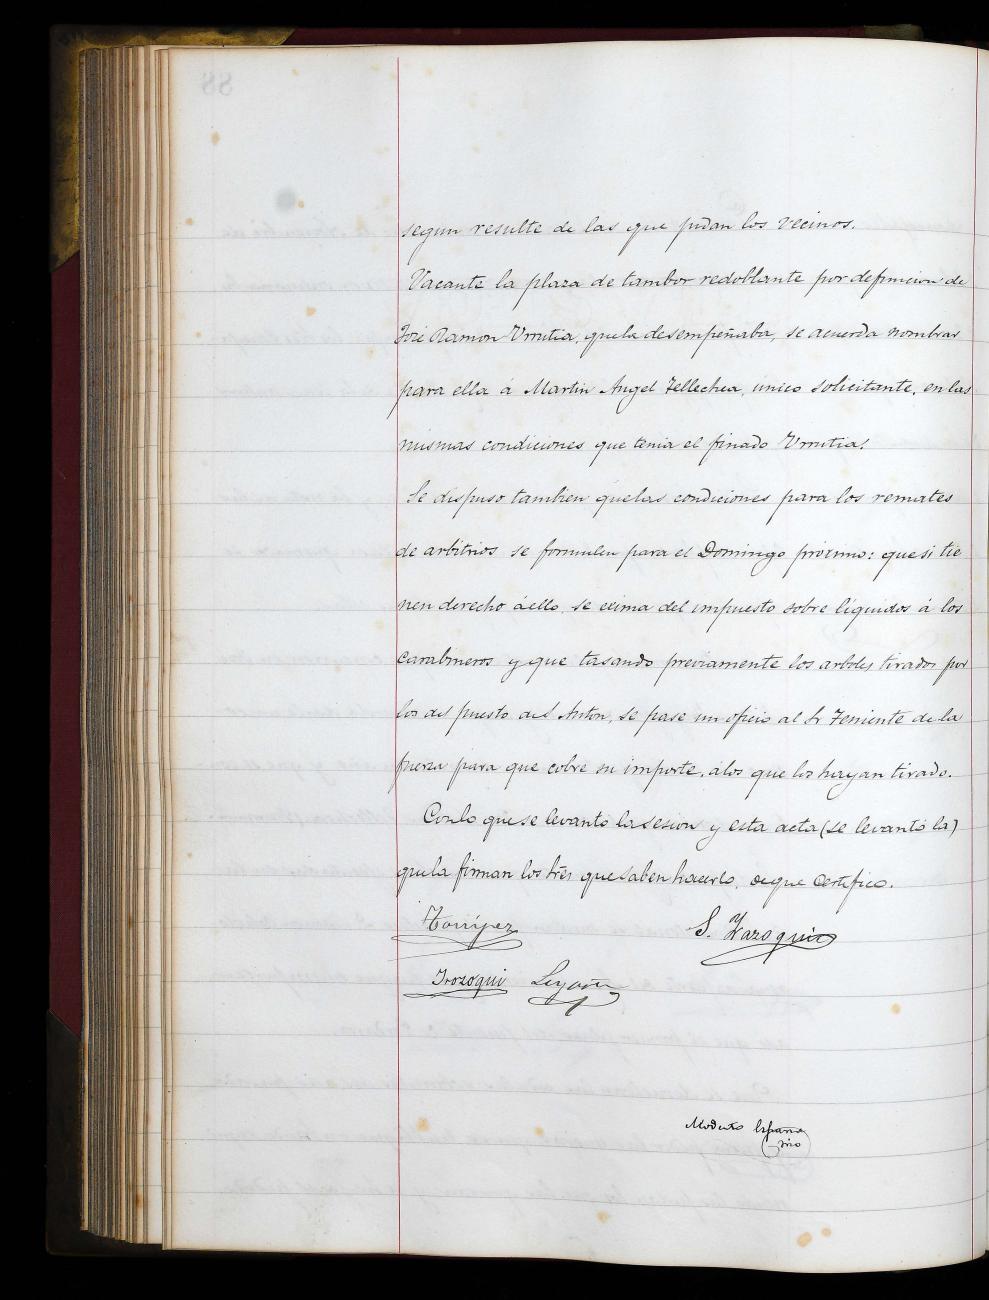 segun resulte de las que pidan los vecinos.
Vacante la plaza de tambor redoblante por defuncion de
José Ramon Urrutia, que la desempeñaba, se acuerda nombrar
para ella á Martin Angel Tellechea, unico solicitante, en las
mismas condiciones que tenia el finado Urrutia.
Se dispuso tambien que las condiciones para los remates
de arbitrios se formulen para el Domingo próximo: que si tie
nen derecho á ello, se exima del impuesto sobre líquidos á los
carabineros y que tasando previamente los arboles tirados por
los del puesto del Anton, se pase un oficio al Sr Teniente de la
fuerza para que cobre su importe, á los que los hayan tirado.
Con lo que se levantó la sesion y esta acta (se levantó la)
que la firman los tres que saben hacerlo, de que certifico.
S. Yarzoquin
Irozoqui
Modesto España